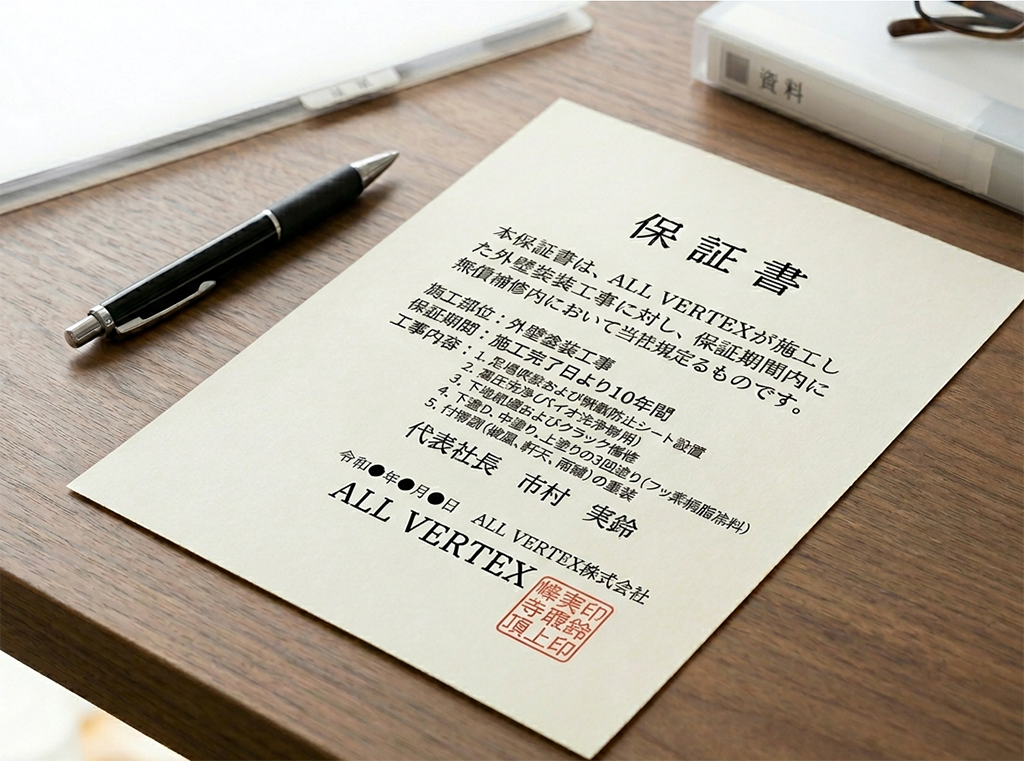 資料
保証書
本保証書は、ALL VERTEXが施工し
た外壁装装工事に対し、保証期間内に
無償補修内において当社規定るものです。
施工部位：外壁塗装工事
保証期間：施工完了日より10年間
工事内容：
1. 足場および防止シート設置
2. 高圧洗浄(バイオ洗浄用)
3. 下地およびクラック補修
4. 下塗り、中塗り、上塗りの3回塗り(フッ素樹脂塗料)
5. 付帯(破風、軒天、雨樋)の重装
代表社長 市村 実鈴
令和●年●月●日 ALL VERTEX株式会社
ALL VERTEX
実印
寺鈴
頂上印